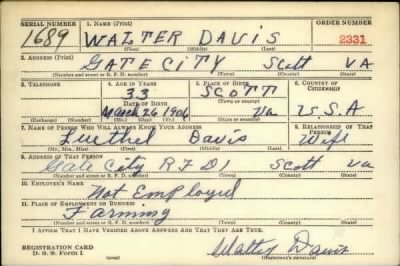 SERIAL NUMBER 1. NAME (Print) ORDER NUMBER
1689 WALTER DAVIS 2331
(First) (Middle) (Last)
2. ADDRESS (Print)
GATE CITY Scott VA
(Number and street or R. F. D. number) (Town) (County) (State)
3. TELEPHONE 4. AGE IN YEARS 5. PLACE OF BIRTH 6. COUNTRY OF CITIZENSHIP
33 SCOTT
DATE OF BIRTH (Town or county)
March 26 1906 Va U.S.A
(Exchange) (Number) (Mo.) (Day) (Yr.) (State or country)
7. NAME OF PERSON WHO WILL ALWAYS KNOW YOUR ADDRESS 8. RELATIONSHIP OF THAT PERSON
Davis Wife
(Mr., Mrs., Miss) (First) (Middle) (Last)
9. ADDRESS OF THAT PERSON
Gate City RFD1 Scott Va
(Number and street or R. F. D. number) (Town) (County) (State)
10. EMPLOYER'S NAME
Not Employed
11. PLACE OF EMPLOYMENT OR BUSINESS
Farming
(Number and street or R. F. D. number) (Town) (County) (State)
I AFFIRM THAT I HAVE VERIFIED ABOVE ANSWERS AND THAT THEY ARE TRUE.
REGISTRATION CARD
D. S. S. Form 1 (over) Walter Davis
(Registrant's signature)